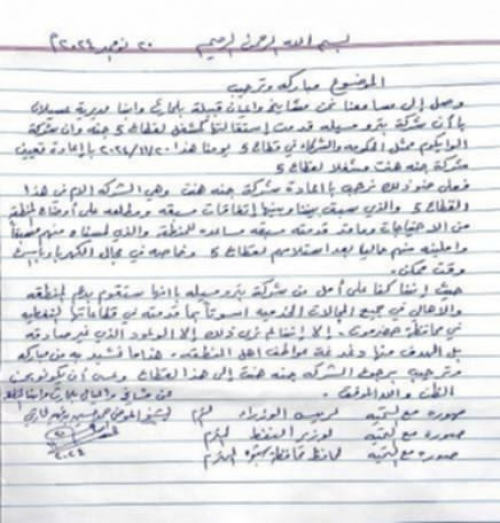 بسم الله الرحمن الرحيم ٢٠ نوفمبر ٢٠٢٤م
الموضوع مباركة وترحيب
وصل إلى مسامعنا نحن مشايخ واعيان قبيلة بلحارث وابناء مديرية عسيلان
بأن شركة بترومسيله قدمت إستقالتها كمشغل لقطاع 5 جنه وان شركة
الوايكوم ممثل الحكومه والشركاء في قطاع 5 يومنا هذا ٢٠٢٤/١١/٢٠ بإعادة تعيين
شركة جنه هنت مشغلا لقطاع 5
فعلى ضوء ذلك نرحب بإعادة شركة جنه هنت وهي الشركه الام في هذا
القطاع 5 والذي سبق بيننا وبينها إتفاقات مسبقه ومطلعه على أوضاع المنطقة
من الاحتياجات وماقد قدمته مسبقه مساعده للمنطقة والذي لمسناه منهم مسبقاً
واملينه منهم حاليا بعد استلامهم لقطاع 5 وخاصه في مجال الكهرباء بأسرع
وقت ممكن.
حيث إننا كنا على أمل من شركة بترومسيله بانها ستقوم بدعم المنطقه
والأهالي في جميع المجالات الخدميه اسوتاً بما قدمته في قطاعاتها النفطيه
في محافظة حضرموت. إلا إننا لم نرى ذلك إلا الوعود الذي غير صادقه
بل الهدف منها دغدغة عواطف اهل المنطقه. هذا ما نشيد به من مباركه
وترحيب برجوع الشركه جنه هنت إلى هذا القطاع وعسى أن يكونو بحسن
الظن والله الموفق. من مشائخ واهالي بلحارث وابناء
صوره مع التحيه لرئيس الوزراء المحترم
صوره مع التحيه لوزير النفط المحترم
صوره مع التحيه لمحافظ محافظة شبوه المحترم ٢٠٢٤